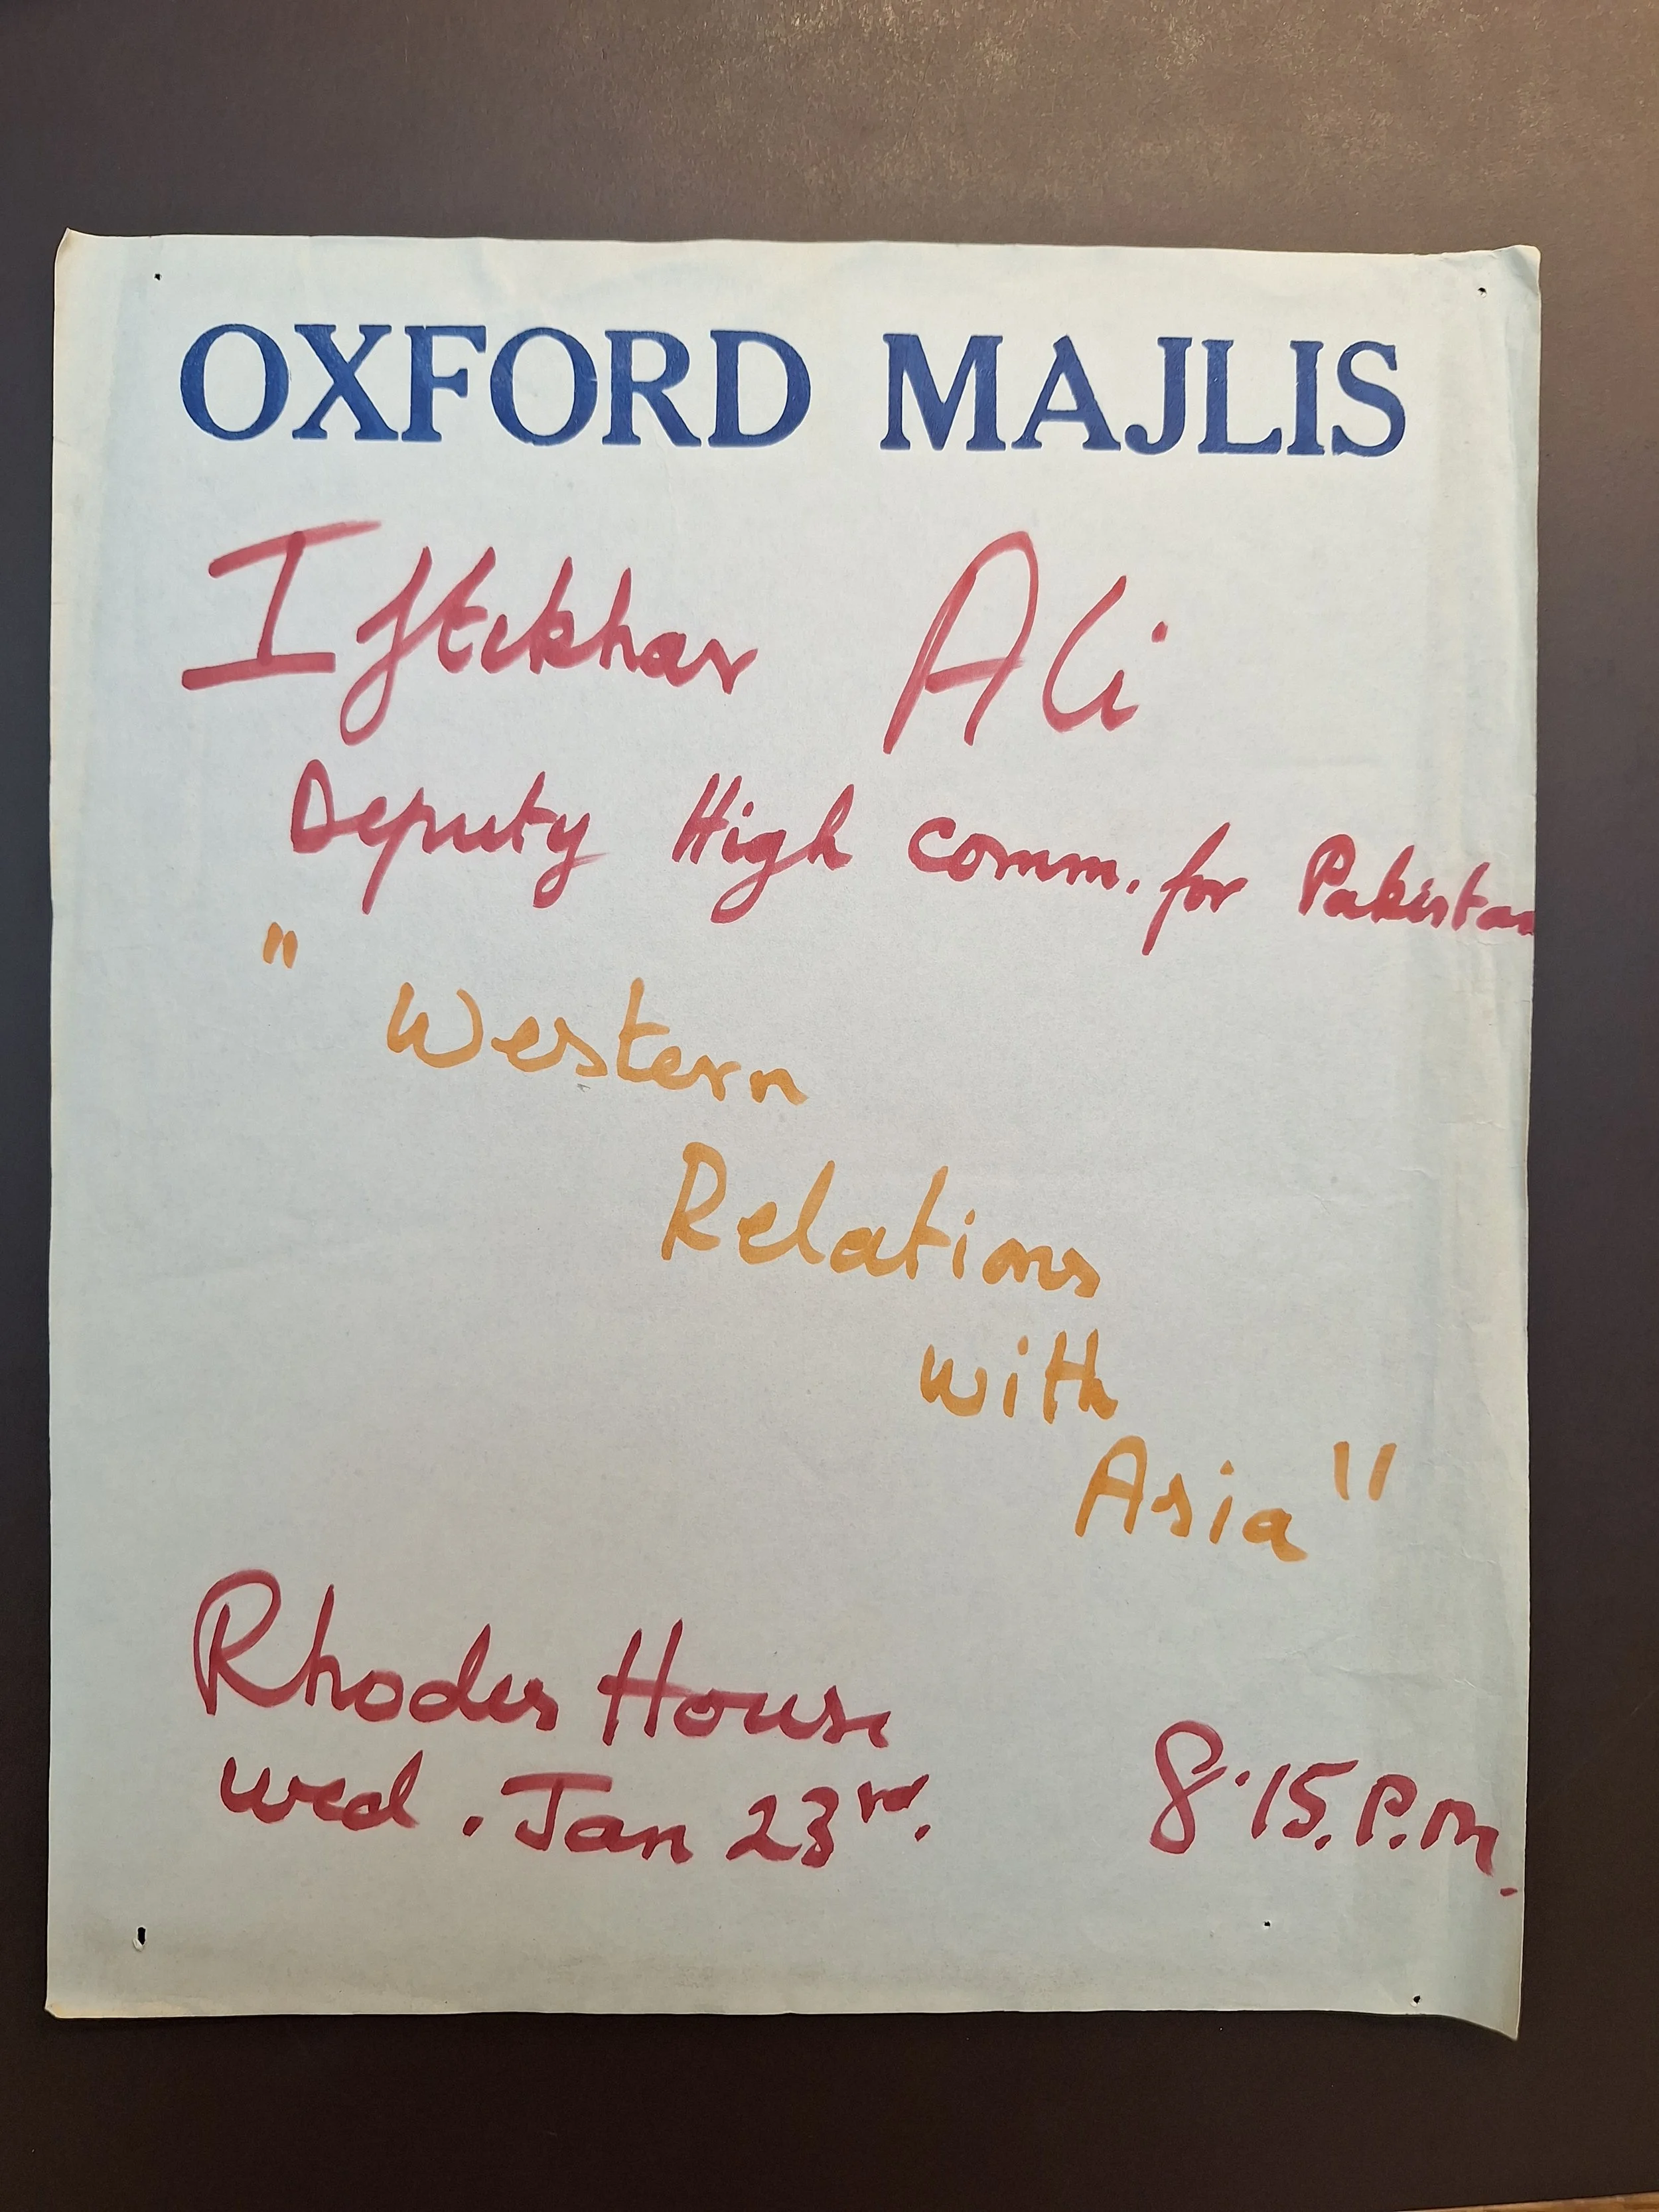 OXFORD MAJLIS
Iftikhar Ali
Deputy High Comm. for Pakistan
" Western
Relations
with
Asia "
Rhodes House
Wed. Jan 23rd. 8.15. P.m.